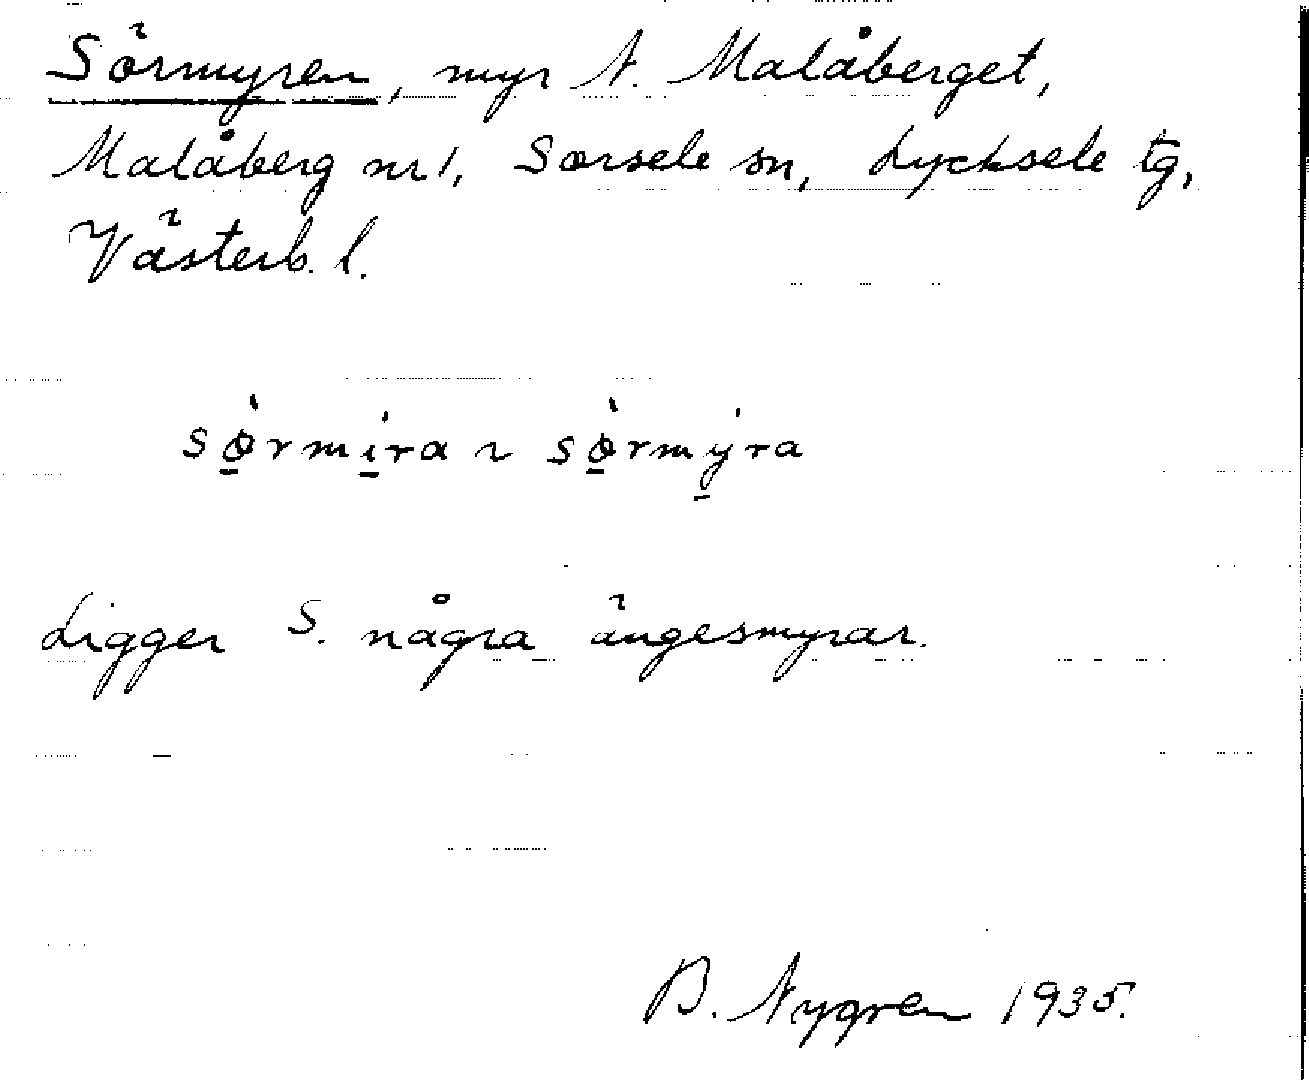 Sörmyren, myr N. Malåberget,
Malåberg nr 1, Sorsele sn, Lycksele tg,
Västerb. l.
sø̱̀rmí̱ra ~ sø̱̀rmý̱ra
Ligger S. några ängesmyrar.
B. Nygren 1935.